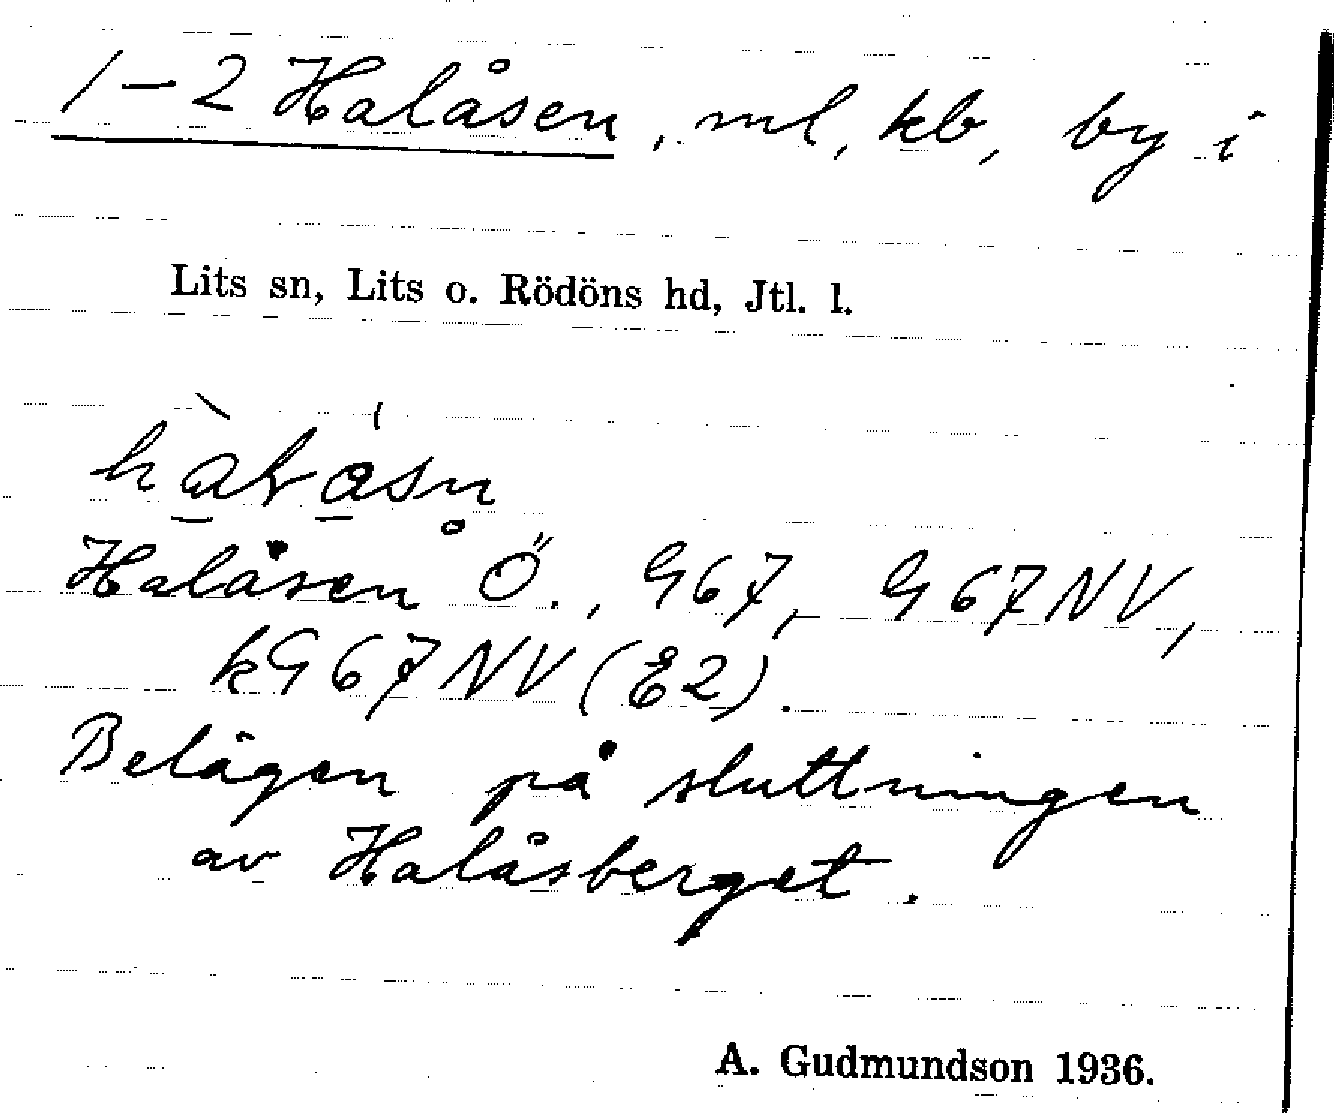 1-2 Halåsen, ml, kb, by i
Lits sn, Lits o. Rödöns hd, Jtl. l.
Halåsen Ö., G67, G67NV,
kG67NV (E2).
Belägen på sluttningen
av Halåsberget.
A. Gudmundson 1936.